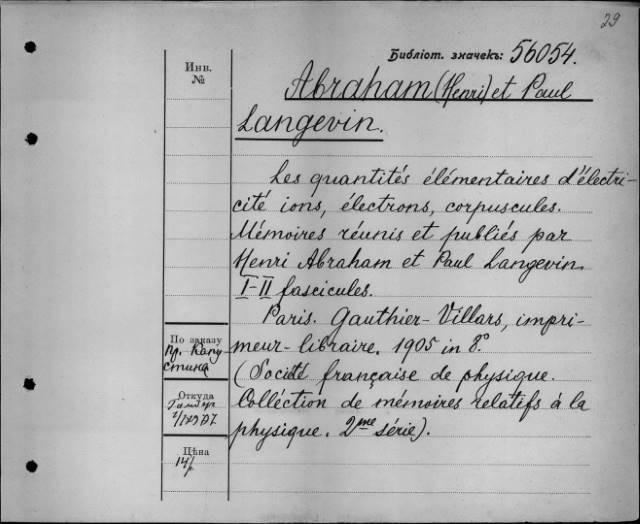 29
Библіот. значекъ: 56054.
Инв.
№
Abraham (Henri) et Paul
Langevin.
Les quantités élémentaires d'électri-
cité ions, électrons, corpuscules.
Mémoires réunis et publiés par
Henri Abraham et Paul Langevin.
I-II fascicules.
Paris. Gauthier-Villars, impri-
meur-libraire. 1905 in 8º.
(Société française de physique.
Colléction de mémoires relatifs à la
physique. 2me série).
По заказу
пр. Капу
стина
Откуда
Цѣна
14/